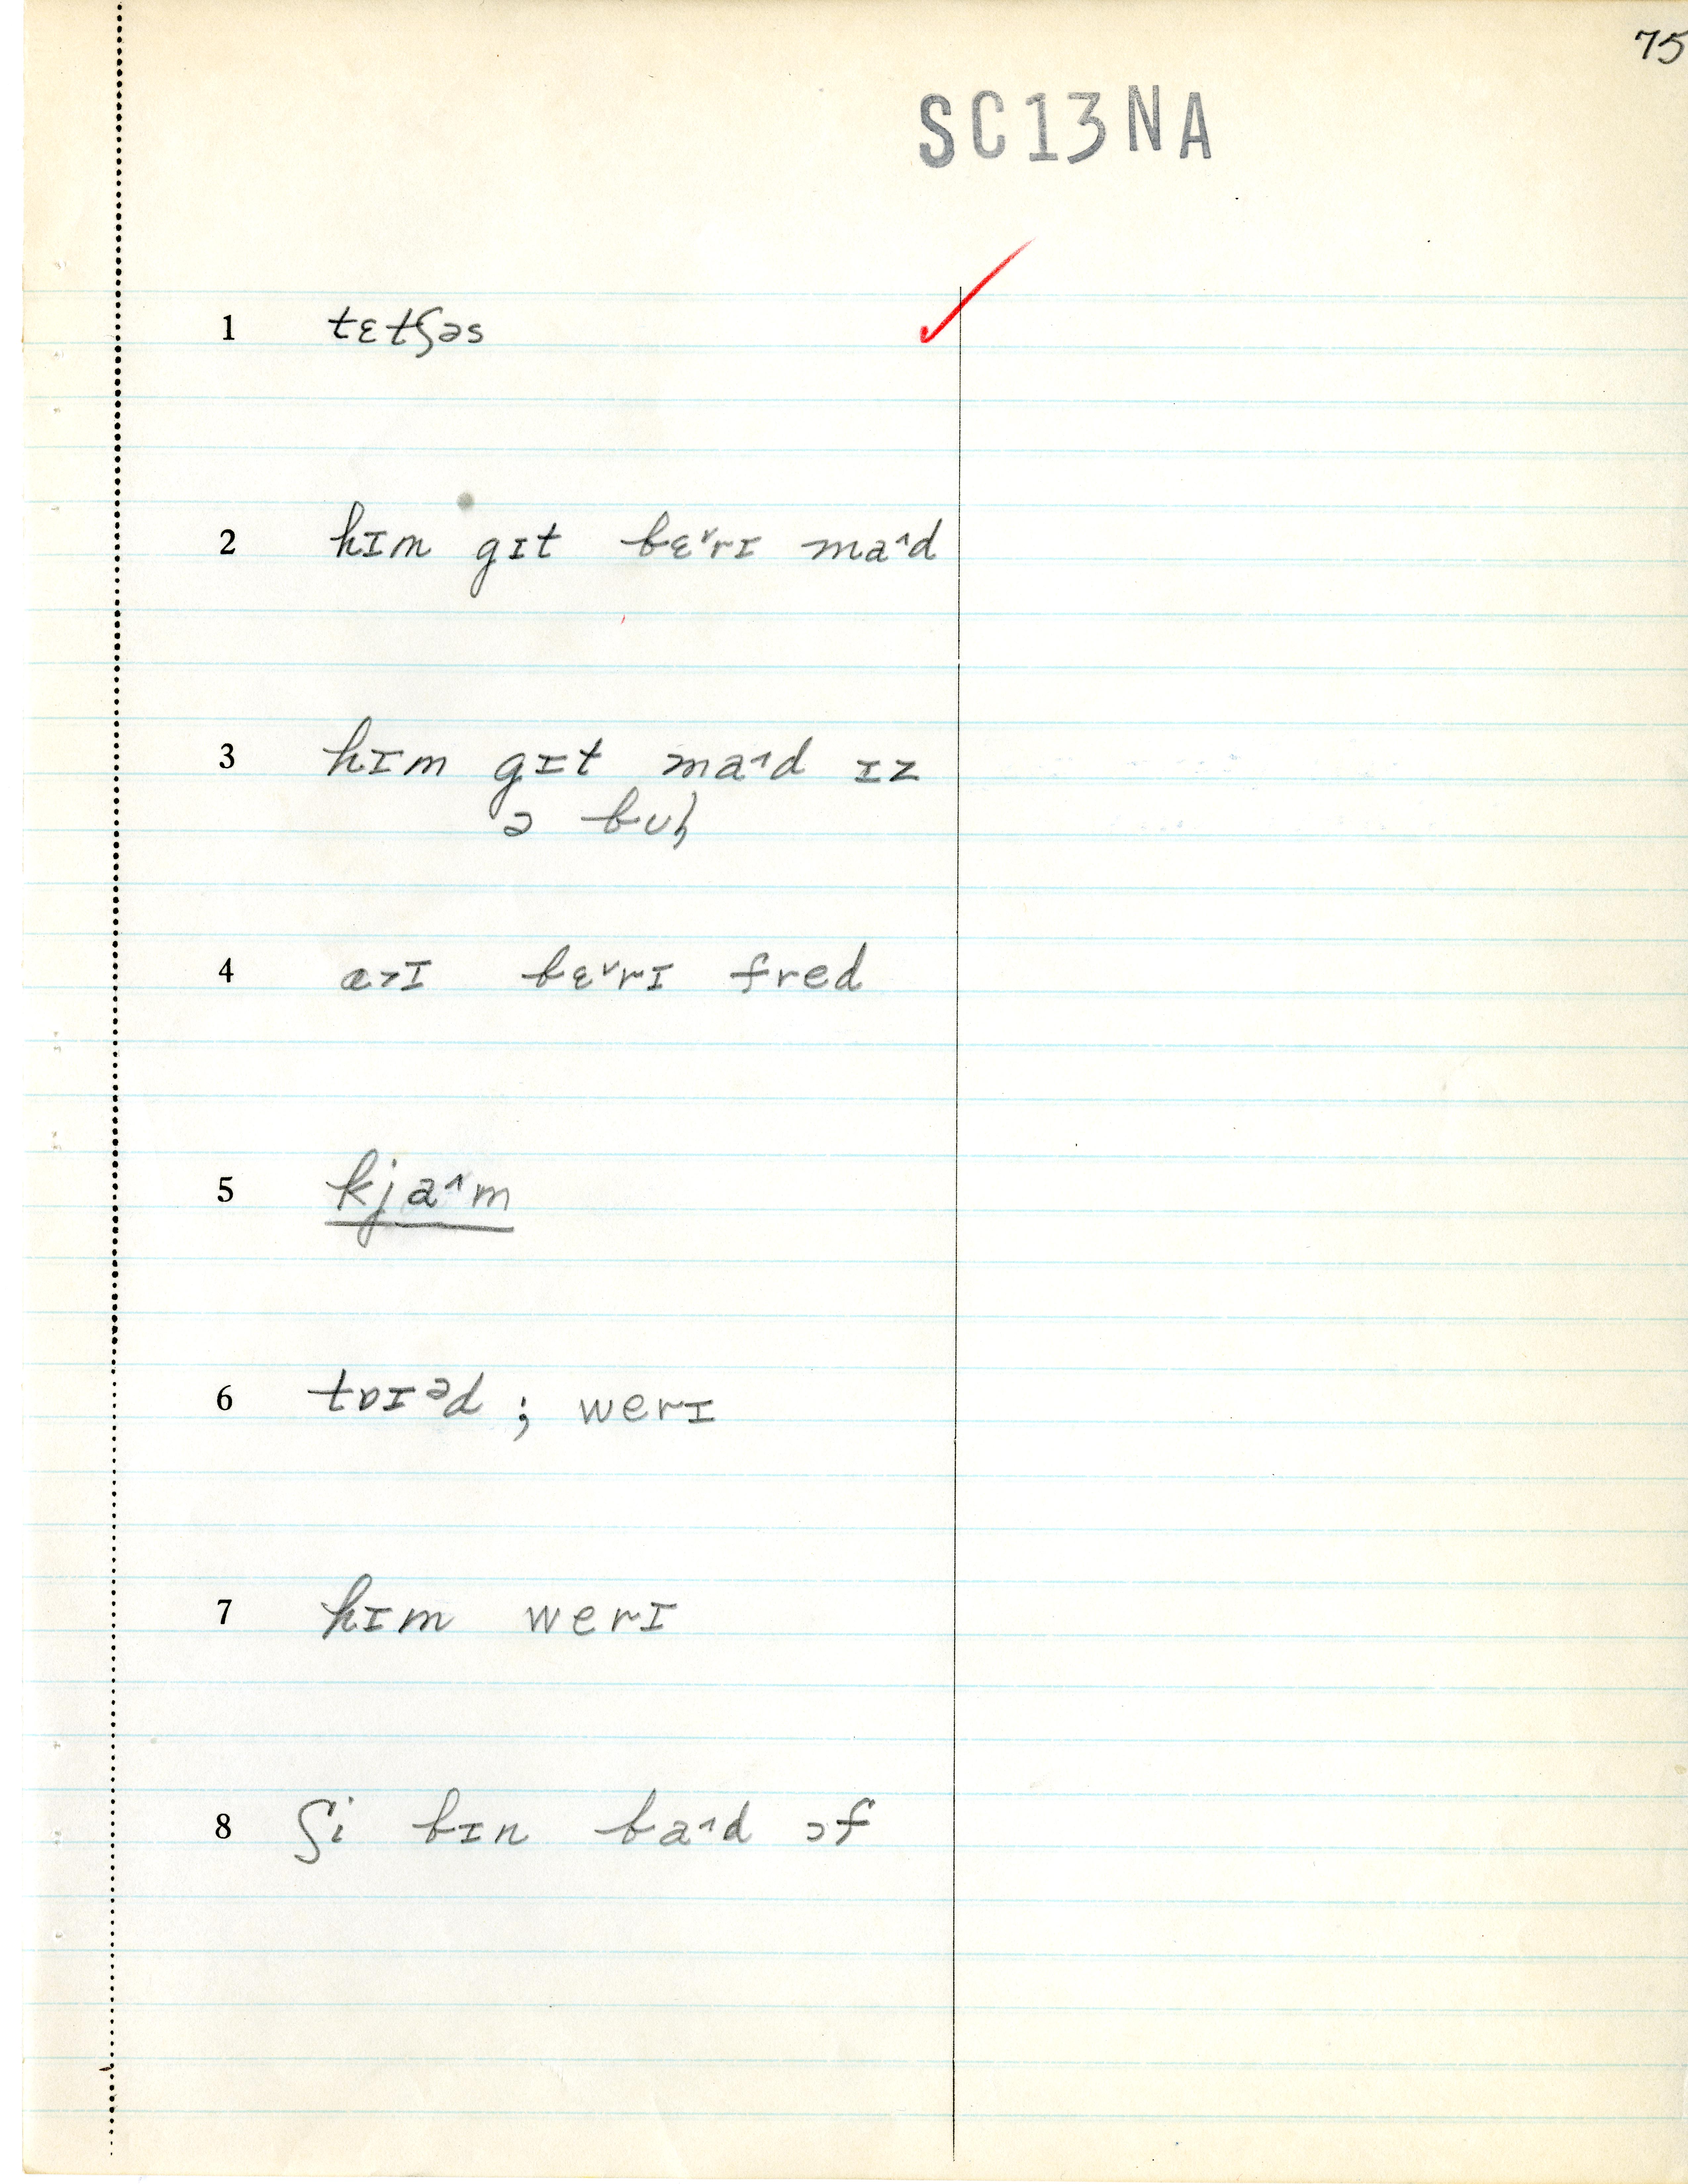 75
SC13NA
1 tɛtʃəs
2 hɪm gɪt bɛ˅rɪ ma˄d
3 hɪm gɪt ma˄d ɪz
ə bʊɫ
4 ɑ˃ɪ bɛ˅rɪ fred
5 kja˄m
6 tɒɪᵊd ; werɪ
7 hɪm werɪ
8 ʃi bɪn ba˄d ɔf